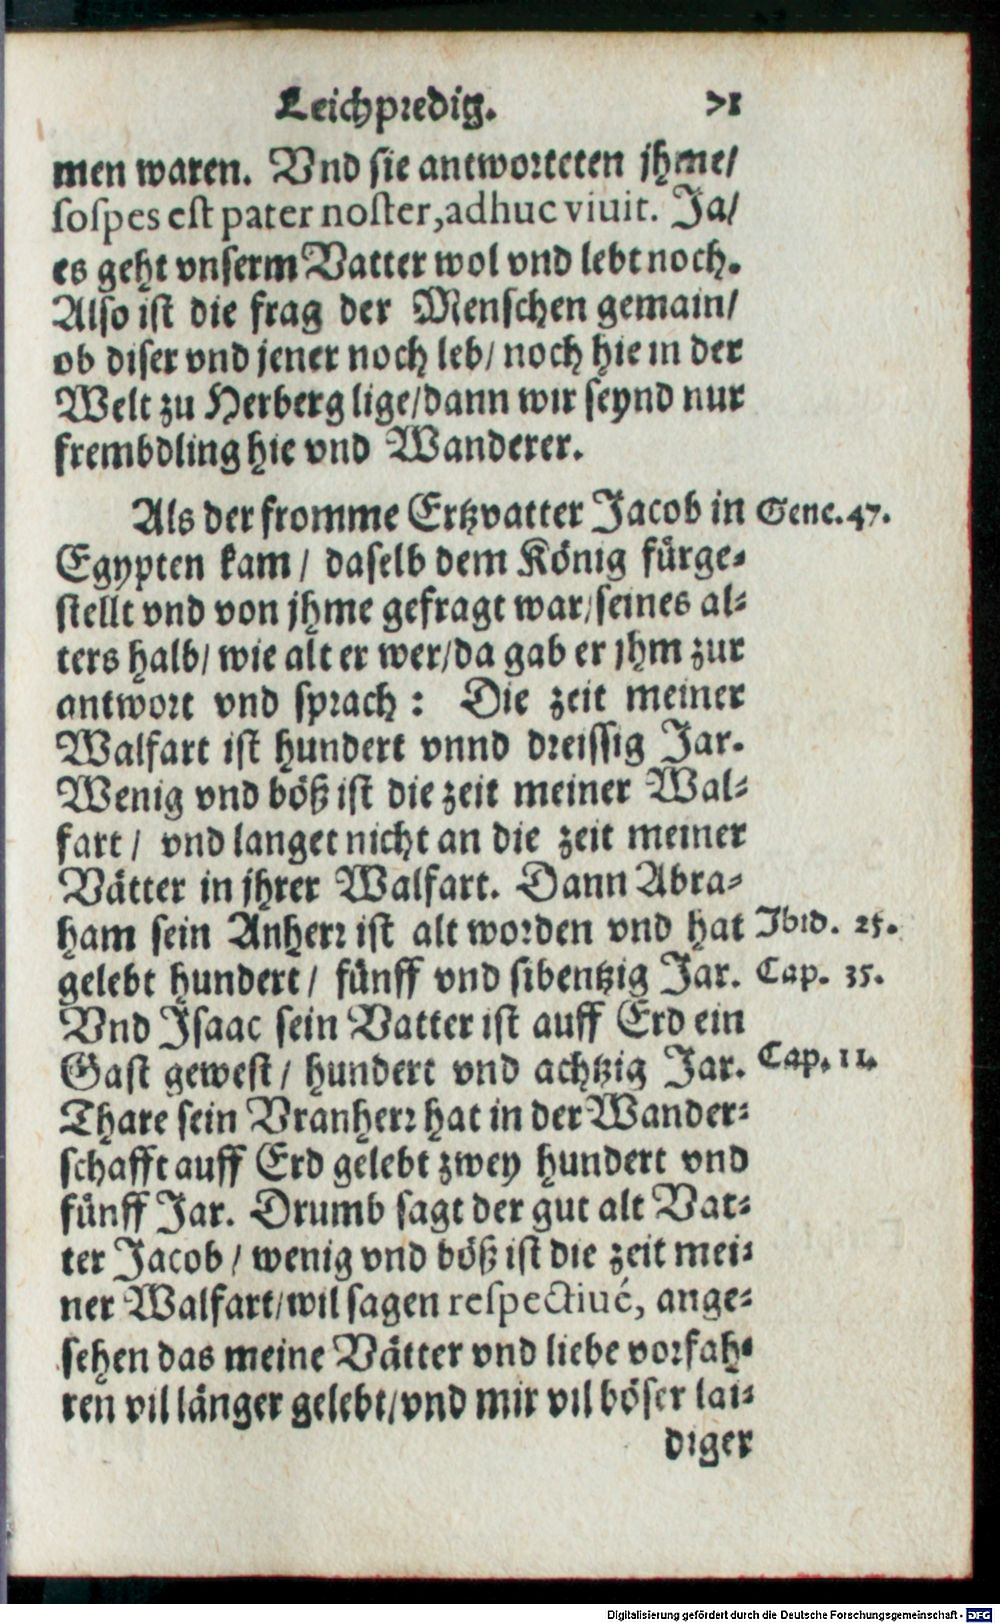 Leichpredig. 71
men waren. Vnd sie antworteten jhme/
sospes est pater noster, adhuc viuit. Ja/
es geht vnserm Vatter wol vnd lebt noch.
Also ist die frag der Menschen gemain/
ob diser vnd jener noch leb/ noch hie in der
Welt zu Herberg lige/ dann wir seynd nur
frembdling hie vnd Wanderer.
Als der fromme Ertzvatter Jacob in Gene. 47.
Egypten kam / daselb dem König fürge-
stellt vnd von jhme gefragt war/ seines al-
ters halb/ wie alt er wer/ da gab er jhm zur
antwort vnd sprach : Die zeit meiner
Walfart ist hundert vnnd dreissig Jar.
Wenig vnd böß ist die zeit meiner Wal-
fart / vnd langet nicht an die zeit meiner
Vätter in jhrer Walfart. Dann Abra-
ham sein Anherr ist alt worden vnd hat Ibid. 25.
gelebt hundert / fünff vnd sibentzig Jar. Cap. 35.
Vnd Isaac sein Vatter ist auff Erd ein
Gast gewest / hundert vnd achtzig Jar. Cap. 11.
Thare sein Vranherr hat in der Wander-
schafft auff Erd gelebt zwey hundert vnd
fünff Jar. Drumb sagt der gut alt Vat-
ter Jacob / wenig vnd böß ist die zeit mei-
ner Walfart/ wil sagen respectiué, ange-
sehen das meine Vätter vnd liebe vorfah-
ren vil länger gelebt/ vnd mir vil böser lai-
diger
Digitalisierung gefördert durch die Deutsche Forschungsgemeinschaft - DFG